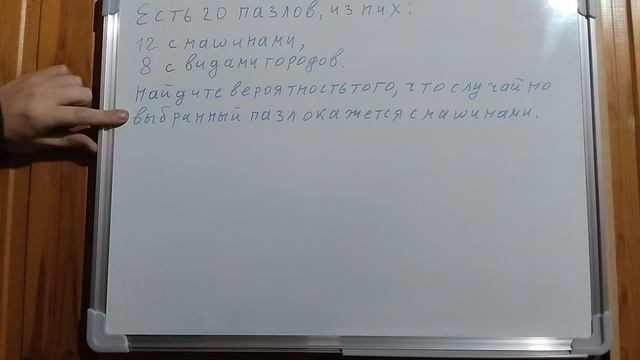 Есть 20 пазлов, из них:
12 с машинами,
8 с видами городов.
Найдите вероятность того, что случайно
выбранный пазл окажется с машинами.